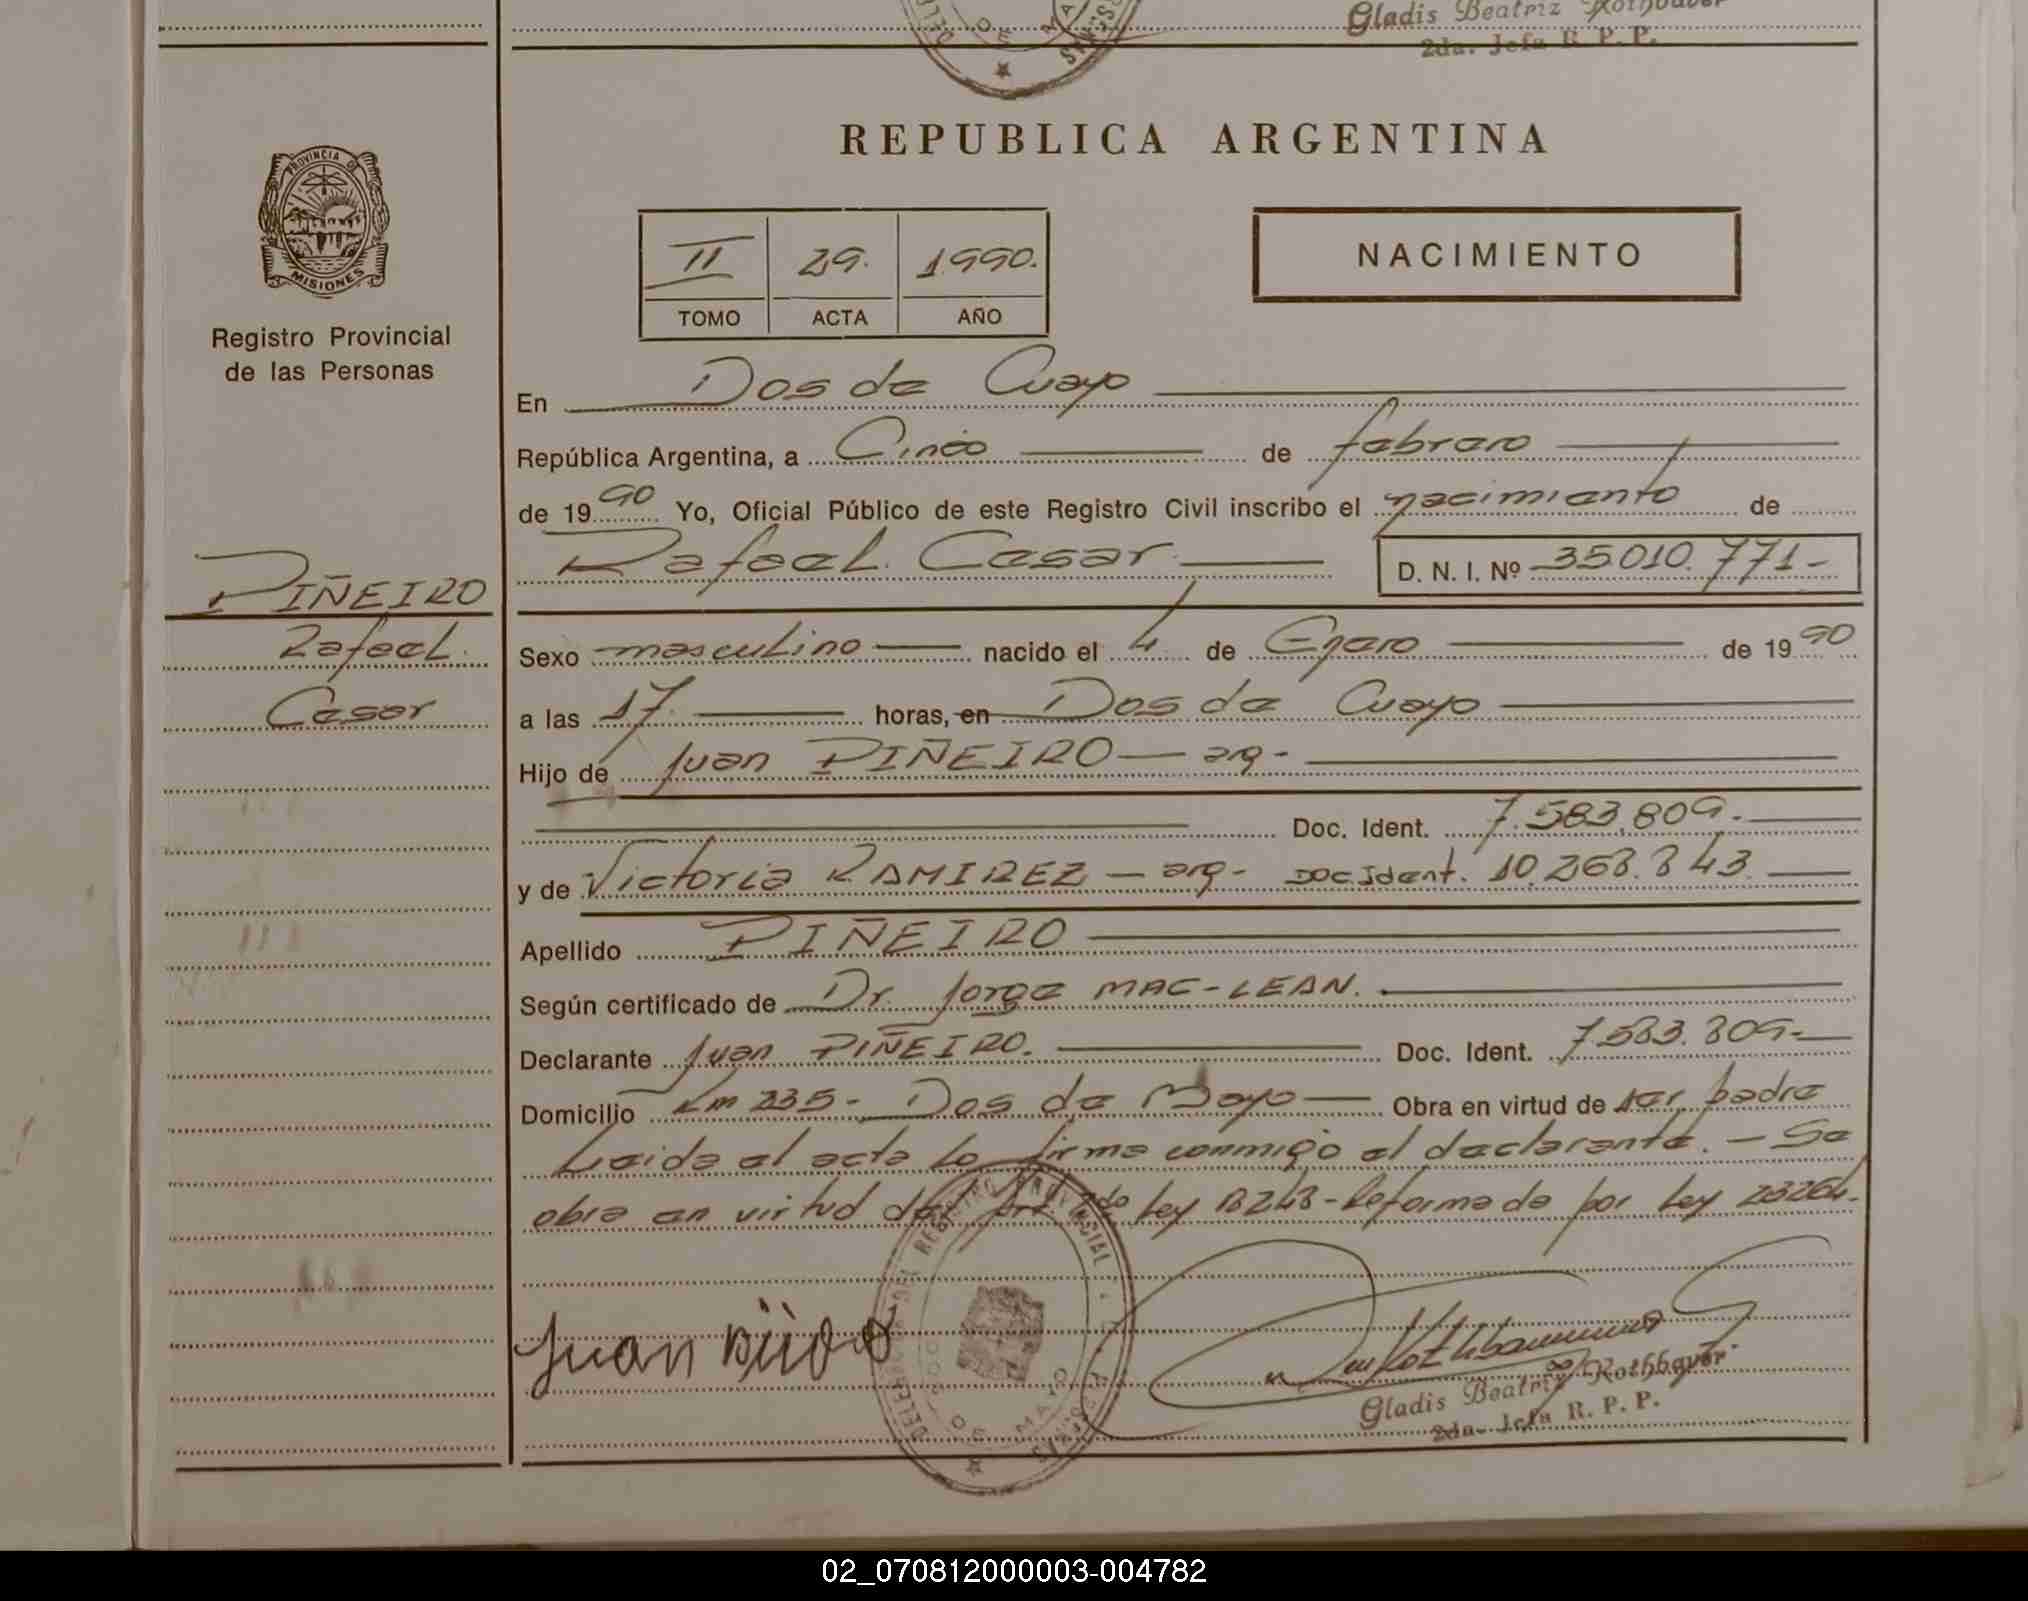 Gladis Beatriz Rothbauer
2da. Jefa R. P. P.
PROVINCIA DE
MISIONES
Registro Provincial
de las Personas
PIÑEIRO
Rafael
Cesar
REPUBLICA ARGENTINA
II 29. 1990.
TOMO ACTA AÑO
NACIMIENTO
En Dos de Mayo
República Argentina, a Cinco de febrero
de 1990 Yo, Oficial Público de este Registro Civil inscribo el nacimiento de
Rafael Cesar D. N. I. Nº 35.010.771-
Sexo masculino nacido el 4 de Enero de 1990
a las 17 horas, en Dos de Mayo
Hijo de Juan PIÑEIRO - arg-
Doc. Ident. 7.583.809.-
y de Victoria RAMIREZ - arg- Doc. Ident. 10.268.843.
Apellido PIÑEIRO
Según certificado de Dr. Jorge MAC-LEAN.
Declarante Juan PIÑEIRO. Doc. Ident. 7.583.809-
Domicilio Km 235- Dos de Mayo Obra en virtud de ser padre
Leida el acta la firma conmigo el declarante. - Se
obra en virtud del Art 2do Ley 18248-Reformado por Ley 23264.
DELEGACION DEL REGISTRO PROVINCIAL
DOS DE MAYO
MISIONES
Juan
Gladis Beatriz Rothbauer
2da. Jefa R. P. P.
02_070812000003-004782